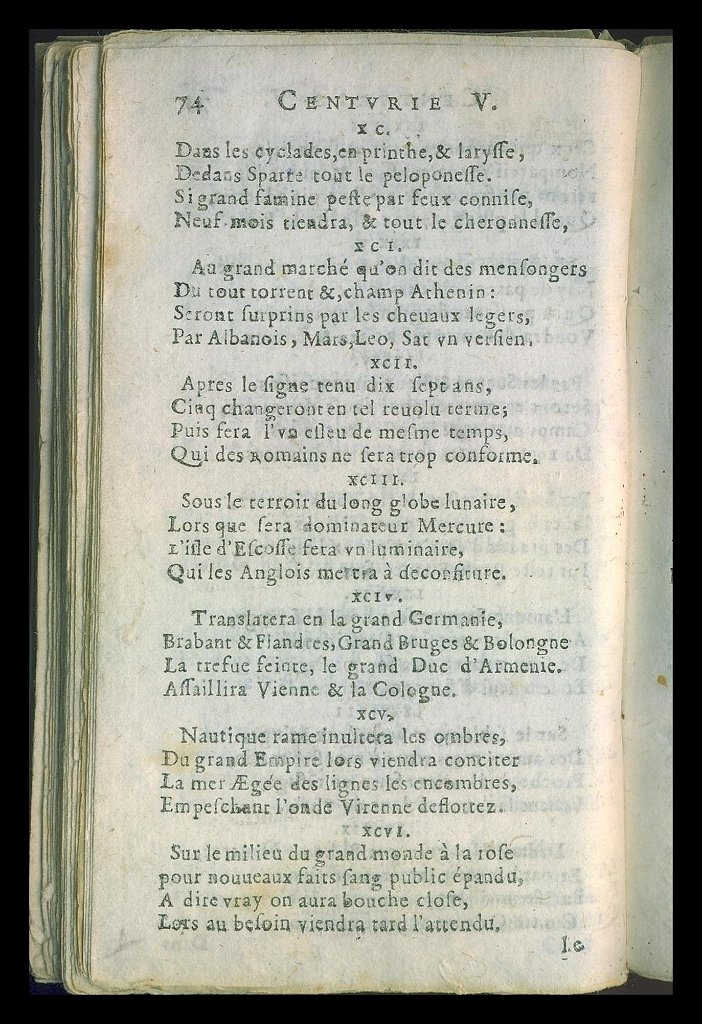 74 CENTVRIE V.
XC.
Dans les cyclades, en printhe, & larysſe,
Dedans Sparte tout le peloponeſſe.
Si grand famine peſte par feux conniſe,
Neuf mois tiendra, & tout le cheronneſſe,
XCI.
Au grand marché qu'on dit des menſongers
Du tout torrent &, champ Athenin:
Seront ſurprins par les cheuaux legers,
Par Albanois, Mars, Leo, Sat vn verſien.
XCII.
Apres le ſigne tenu dix ſept ans,
Cinq changeront en tel reuolu terme;
Puis ſera l'vn eſleu de meſme temps,
Qui des Romains ne ſera trop conforme.
XCIII.
Sous le terroir du long globe lunaire,
Lors que ſera dominateur Mercure:
L'iſle d'Eſcoſſe fera vn luminaire,
Qui les Anglois mettra à deconfiture.
XCIV.
Translatera en la grand Germanie,
Brabant & Flandres, Grand Bruges & Bolongne
La trefue feinte, le grand Duc d'Armenie.
Aſſaillira Vienne & la Cologne.
XCV.
Nautique rame inuitera les ombres,
Du grand Empire lors viendra conciter
La mer Ægée des lignes les encombres,
Empeſchant l'onde Virenne deflottez.
XCVI.
Sur le milieu du grand monde à la roſe
pour nouueaux faits ſang public épandu,
A dire vray on aura bouche cloſe,
Lors au beſoin viendra tard l'attendu.
Le